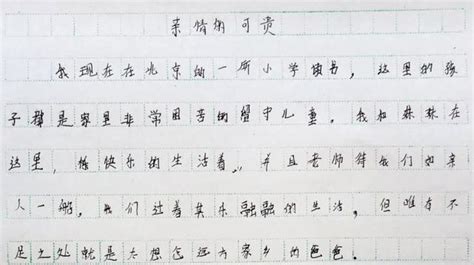 亲情稍可贵
我现在在北京的一所小学读书，这里的孩
子都是家里非常困苦的留守儿童。我和妹妹在
这里，愉快乐的生活着，并且老师待我们如亲
人一般，我们过着其乐融融的生活，但唯有不
足之处就是太想念远方家乡的爸爸。